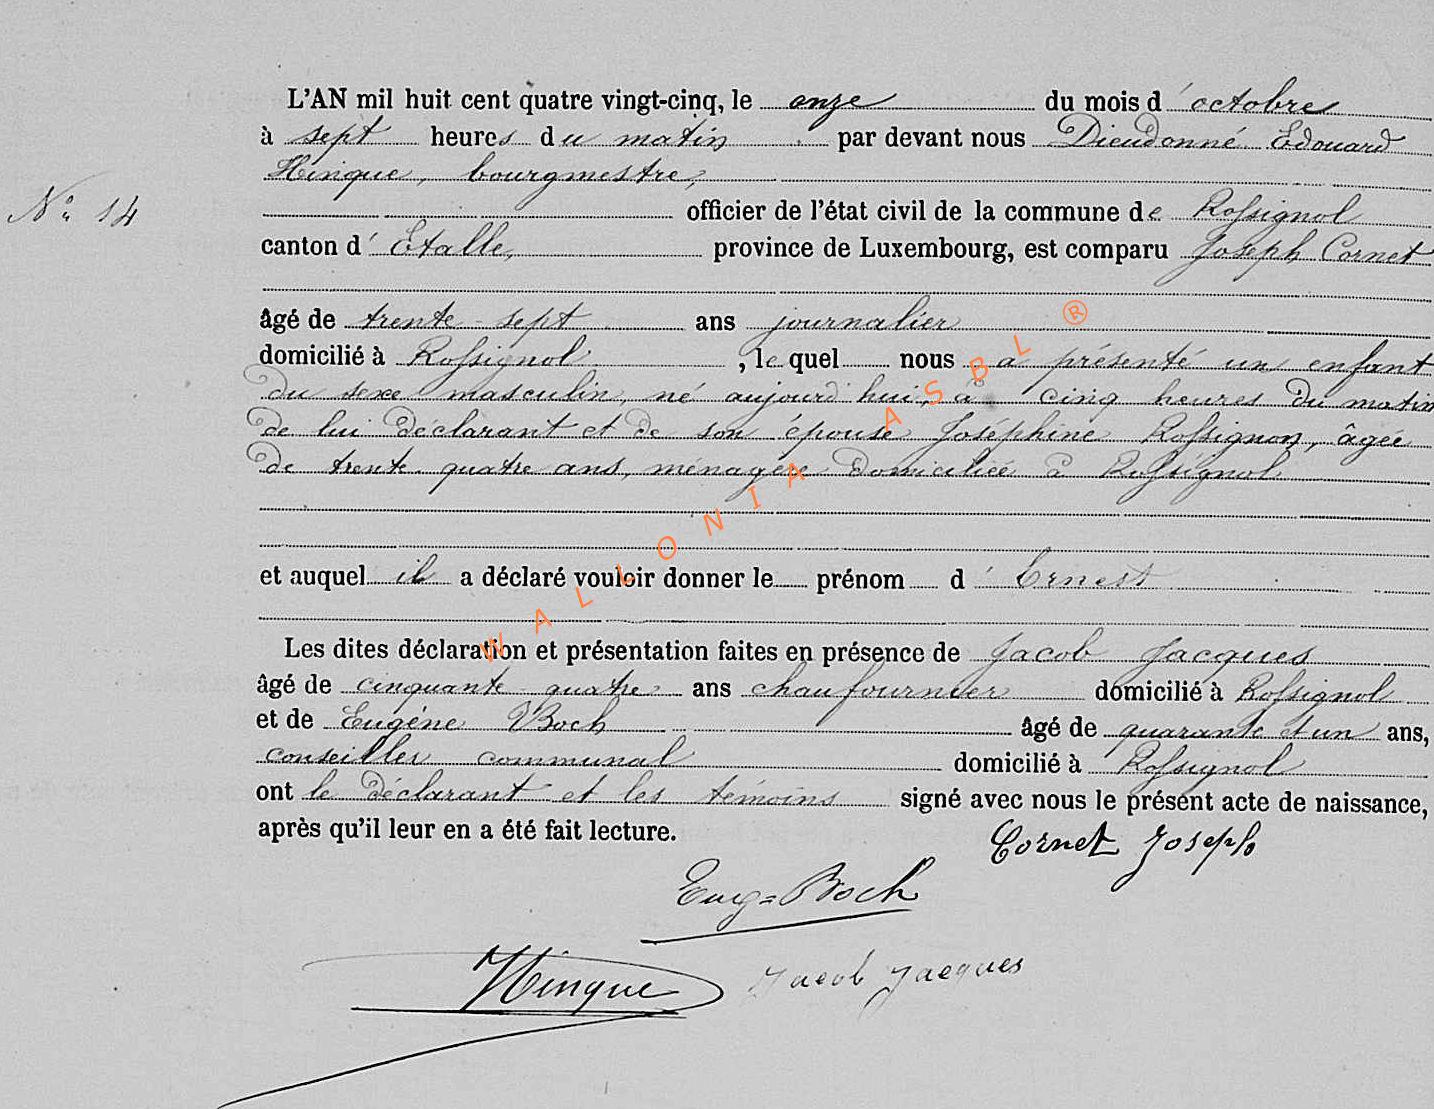 L'AN mil huit cent quatre vingt-cinq, le onze du mois d'octobre
à sept heures du matin par devant nous Dieudonné Edouard
Hinque, bourgmestre,
N° 14
officier de l'état civil de la commune de Rossignol
canton d'Etalle, province de Luxembourg, est comparu Joseph Cornet
âgé de trente-sept ans journalier
domicilié à Rossignol, lequel nous a présenté un enfant
du sexe masculin, né aujourd'hui, à cinq heures du matin
de lui déclarant et de son épouse Joséphine Rossignon, âgée
de trente-quatre ans, ménagère domiciliée à Rossignol
et auquel il a déclaré vouloir donner le prénom d'Ernest
Les dites déclaration et présentation faites en présence de Jacob Jacques
âgé de cinquante-quatre ans chaufournier domicilié à Rossignol
et de Eugène Boch âgé de quarante et un ans,
conseiller communal domicilié à Rossignol
ont le déclarant et les témoins signé avec nous le présent acte de naissance,
après qu'il leur en a été fait lecture.
Cornet Joseph
Eug= Boch
Hinque Jacob Jacques
WALLONIA ASBL ®